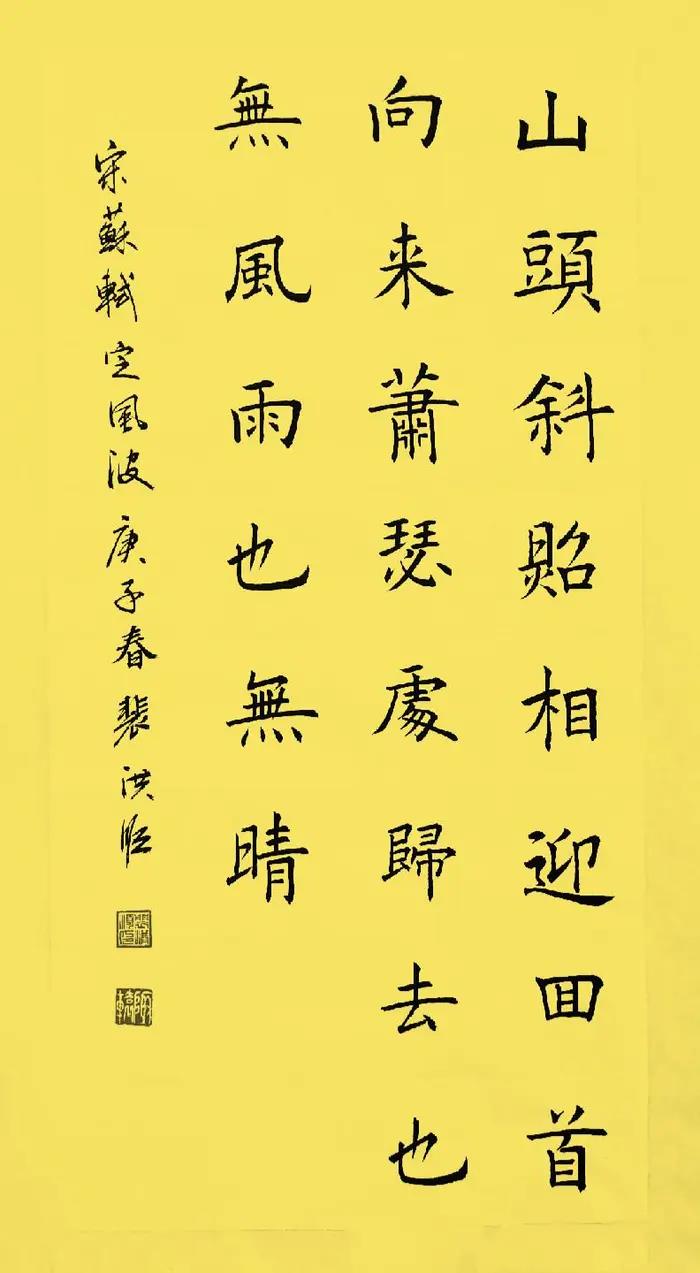 山頭斜照相迎囬首
向来蕭瑟處歸去也
無風雨也無晴
宋蘇軾定風波庚子春裴洪